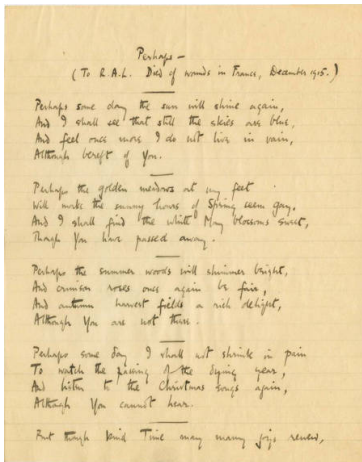 Perhaps —
(To R.A.L. Died of wounds in France, December 1915.)
Perhaps some day the sun will shine again,
And I shall see that still the skies are blue,
And feel once more I do not live in vain,
Although bereft of You.
Perhaps the golden meadows at my feet
Will make the sunny hours of Spring seem gay,
And I shall find the white May blossoms sweet,
Though You have passed away.
Perhaps the summer woods will shimmer bright,
And crimson roses once again be fair,
And autumn harvest fields a rich delight,
Although You are not there.
Perhaps some day I shall not shrink in pain
To watch the passing of the dying year,
And listen to the Christmas songs again,
Although You cannot hear.
But though kind Time may many joys renew,